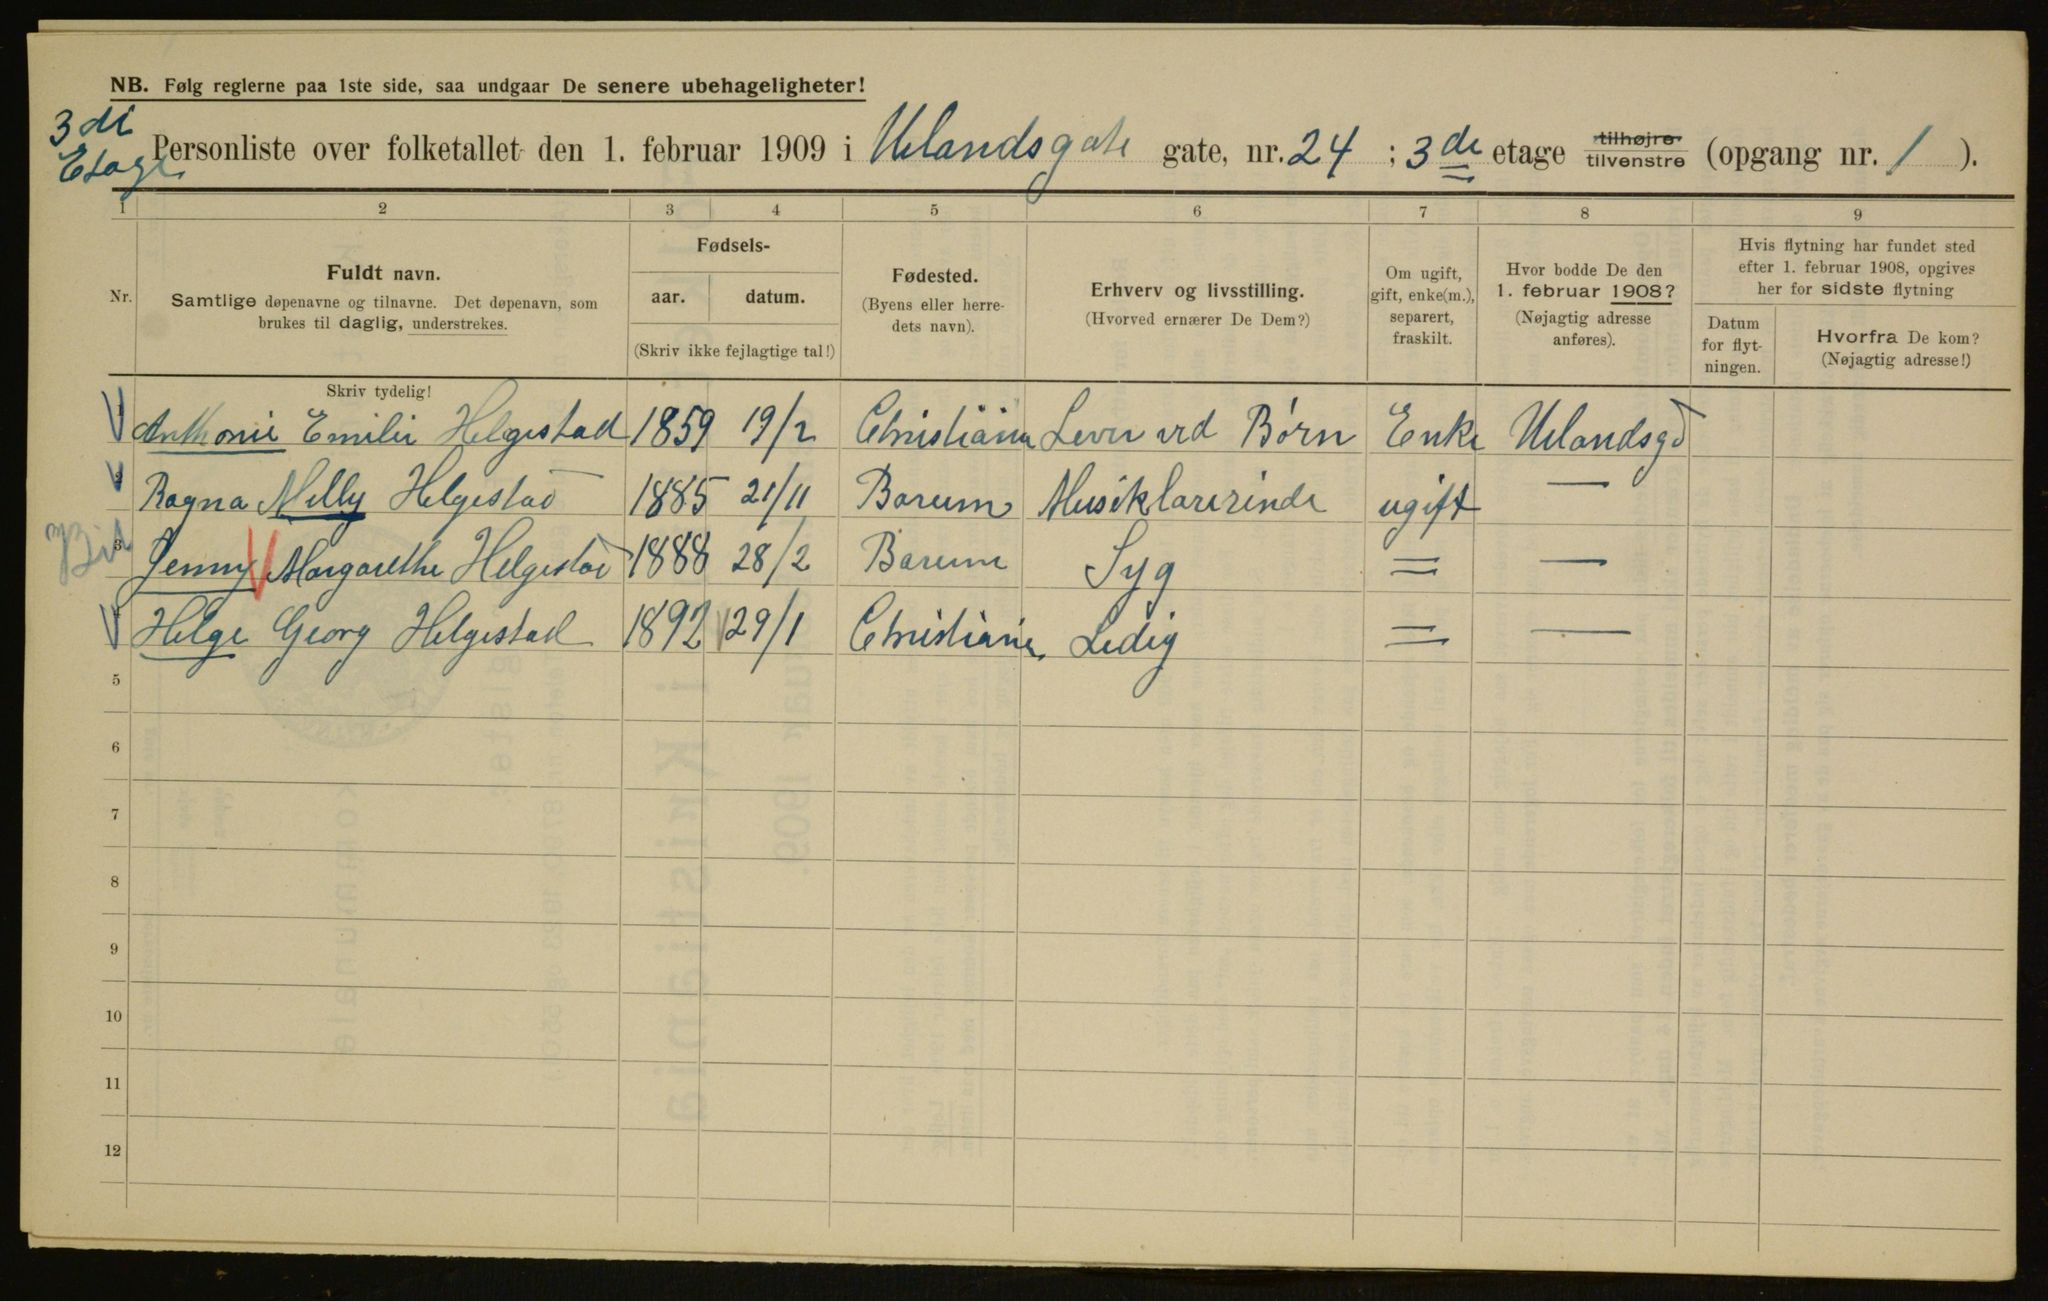 NB. Følg reglerne paa 1ste side, saa undgaar De senere ubehageligheter!
3di
Etage
Personliste over folketallet den 1. februar 1909 i Uelandsgate gate, nr. 24 ; 3de etage tilhøjre tilvenstre (opgang nr. 1 ).
1 2 3 4 5 6 7 8 9
Nr.
Fuldt navn.
Samtlige døpenavne og tilnavne. Det døpenavn, som
brukes til daglig, understrekes.
Fødsels-
aar. datum.
(Skriv ikke fejlagtige tal!)
Fødested.
(Byens eller herre-
dets navn).
Erhverv og livsstilling.
(Hvorved ernærer De Dem?)
Om ugift,
gift, enke(m.),
separert,
fraskilt.
Hvor bodde De den
1. februar 1908?
(Nøjagtig adresse
anføres).
Hvis flytning har fundet sted
efter 1. februar 1908, opgives
her for sidste flytning
Datum
for flyt-
ningen.
Hvorfra De kom?
(Nøjagtig adresse!)
Skriv tydelig!
1 Anthonie Emilie Helgestad 1859 19/2 Christiania Lever ved Børn Enke Uelandsgd
2 Ragna Melly Helgestad 1885 21/11 Barum Musiklarerinde ugift —
3 Jenny Margarethe Helgestad 1888 28/2 Barum Syg = —
Helge Georg Helgestad 1892 29/1 Christiania Ledig = —
5
6
7
8
9
10
11
12